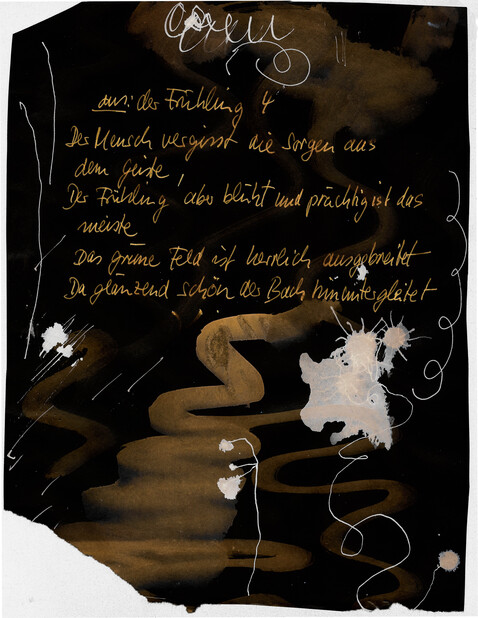 aus: der Frühling 4
Der Mensch vergisst die Sorgen aus
dem Geiste,
Der Frühling aber blüht und prächtig ist das
meiste
Das grüne Feld ist herrlich ausgebreitet
Da glänzend schön der Bach hinuntergleitet